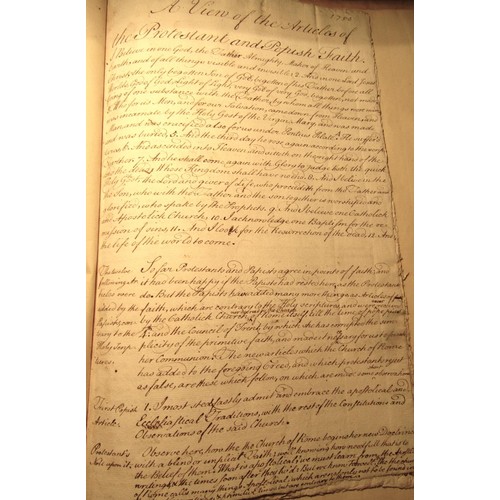 A View of the Articles of
the Protestant and Popish Faith.
I Believe in one God, the Father Almighty, Maker of Heaven and
Earth and of all things visible and invisible. 2. And in one Lord Jesus
Christ the only begotten Son of God, begotten of his Father before all
Worlds, God of God, Light of Light, very God of very God, begotten, not made
being of one substance with the Father, by whom all things were made
3. Who for us Men, and for our Salvation, came down from Heaven, and
was incarnate by the Holy Gost of the Virgin Mary, and was made
Man, and was crucified also for us under Pontius Pilate. He suffered
and was buried. 5. And the third day he rose again according to the scrip
6. And ascended into Heaven and sitteth on the right hand of the
Father. 7. And he shall come again with Glory to judge both the quick
and the dead; Whose Kingdom shall have no end. 8. And I believe in the
Holy Gost the Lord and giver of Life, who proceedeth from the Father and
the Son, who with the Father and the Son together is worshiped and
glorified, who spake by the Prophets. 9. And I believe one Catholick
and Apostolick Church, 10. I acknowledge one Baptism for the re
mission of sins. 11. And I look for the Resurrection of the dead, 12. And
the life of the world to come.
The twelve So far Protestants and Papists agree in points of faith, and
following Ar- it has been happy if the Papists had rested here, as the Protestant
ticles were do. But the Papists have added many more things as Articles of
added by the faith, which are contrary to the Holy scriptures, and
Papists con by the Catholick Church of Rome itself till the time of
trary to the and the Council of Trent, by which she has corrupted the sim
Holy Scrip plicity of the primitive faith, and made
tures. her Communion. The new articles which the Church of Rome
has added to the foregoing Creed, and which protestants reject
as false, are these which follow, on which are made some observations
First Popish 1. I most stedfastly admit and embrace the apostolical and
Article. Ecclesiastical Traditions, with the rest of the Constitutions and
Observations of the said Church.
Protestant's Observe here, how the Church of Rome begins her new Doctrine
Note upon it. with a blind or implicit Faith; well knowing how needful that is to
the Belief of them. What is apostolical we must learn from the Apostles
writings